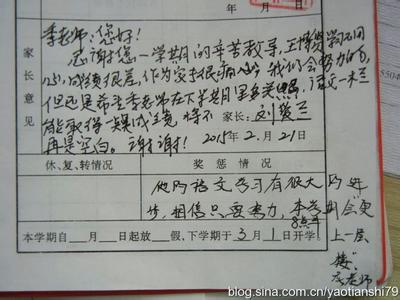 年 月 日
家长意见
李老师:您好!
感谢您一学期的辛苦教导,王
心,成绩很差,作为家长很痛心。我们会努力的,
但还是希望李老师在下学期里多关照,语文一木兰
能取得一点成绩,将不
家长:刘爱兰
再是空白。谢谢!
2015年2月21日
休、复、转情况
奖惩情况
他的语文学习有很大的进
步,相信只要努力,本 会更
8点半
上一层
楼。
本学期自__月__日起放__假,下学期于3月1日开学。
老师
blog.sina.com.cn/yaotianshi79